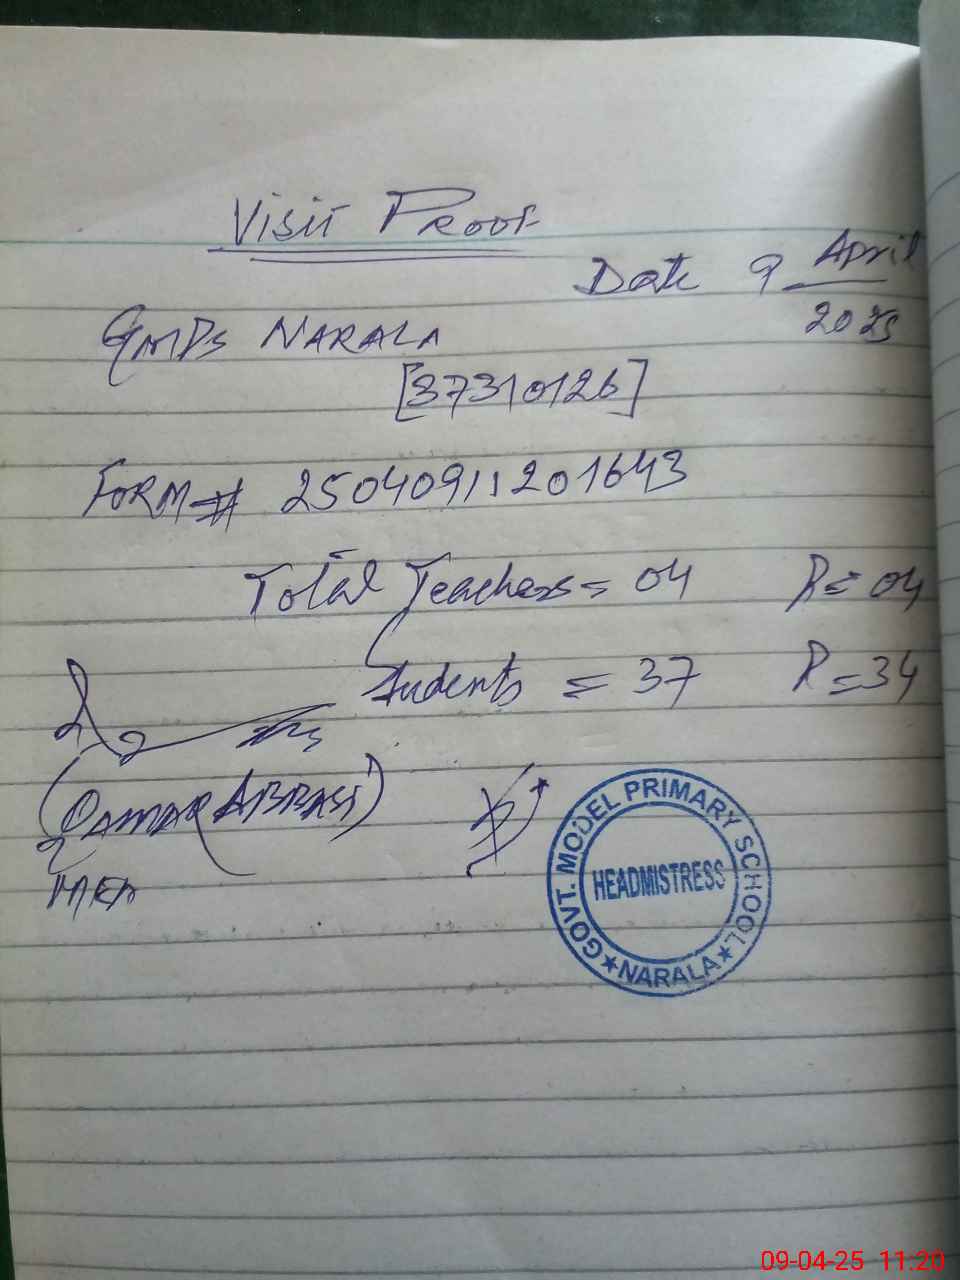 Visit Proof
Date 9 April
2025
GMPS NARALA
[37310126]
FORM# 25040911201643
Total Teachers = 04 P = 04
Students = 37 P = 34
(QAMAR ABBASI)
MEA
GOVT. MODEL PRIMARY SCHOOL
HEADMISTRESS
★ NARALA ★
09-04-25 11:20